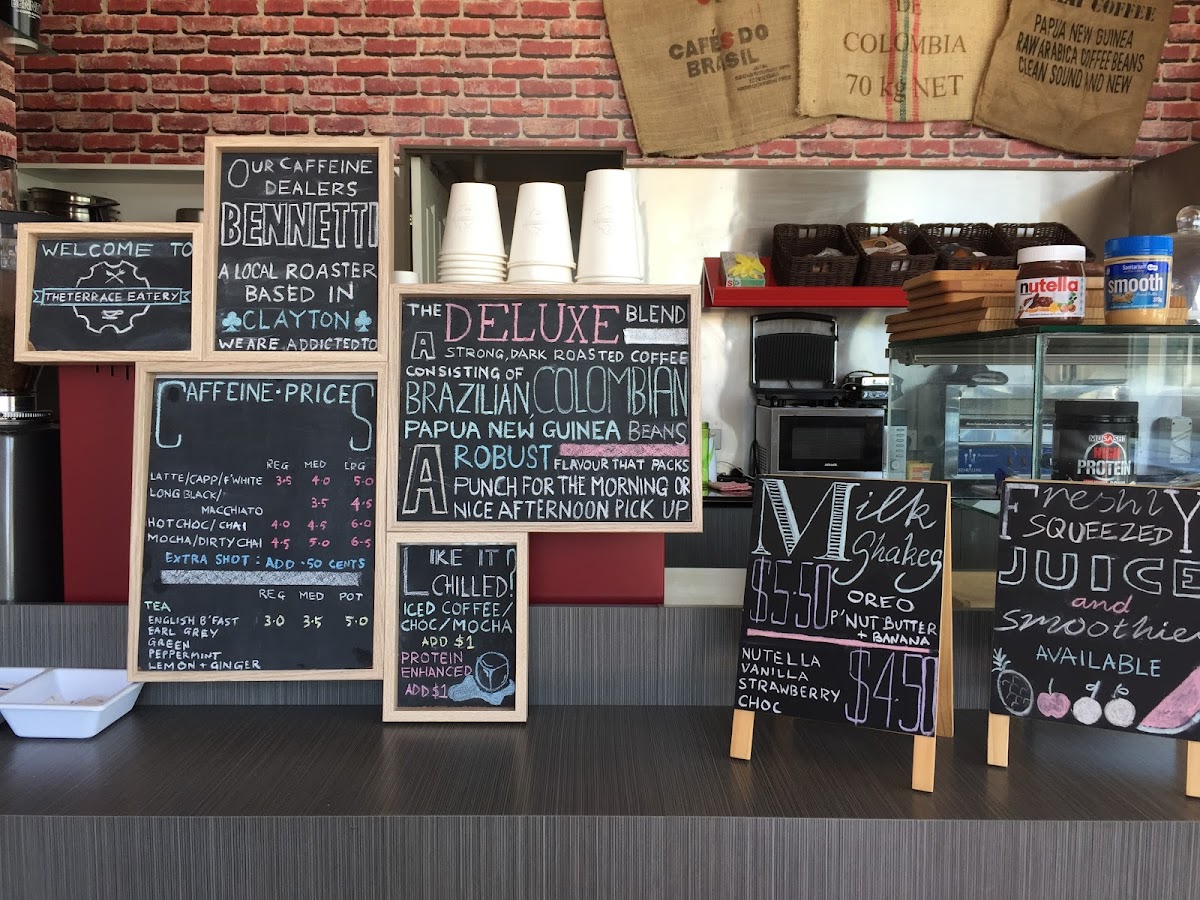 CAFÉS DO
BRASIL
DE
COLOMBIA
70 kg NET
COFFEE
PAPUA NEW GUINEA
RAW ARABICA COFFEE BEANS
CLEAN SOUND AND NEW
WELCOME TO
THE TERRACE EATERY
OUR CAFFEINE
DEALERS
BENNETTI
A LOCAL ROASTER
BASED IN
CLAYTON
WE ARE ADDICTED TO
CAFFEINE · PRICES
REG MED LDG
LATTE/CAPP/F'WHITE 3·5 4·0 5·0
LONG BLACK/
MACCHIATO 3·5 4·5
HOT CHOC/CHAI 4·0 4·5 6·0
MOCHA/DIRTY CHAI 4·5 5·0 6·5
EXTRA SHOT : ADD ·50 CENTS
REG MED POT
TEA
ENGLISH B'FAST 3·0 3·5 5·0
EARL GREY
GREEN
PEPPERMINT
LEMON + GINGER
THE DELUXE BLEND
A STRONG, DARK ROASTED COFFEE
CONSISTING OF
BRAZILIAN, COLOMBIAN
PAPUA NEW GUINEA BEANS
A ROBUST FLAVOUR THAT PACKS
PUNCH FOR THE MORNING OR
NICE AFTERNOON PICK UP
LIKE IT
CHILLED?
ICED COFFEE/
CHOC/MOCHA
ADD $1
PROTEIN
ENHANCED
ADD $1
nutella
Sanitarium
smooth
MUSASHI
HIGH
PROTEIN
Milk
Shakes
$5·50
OREO
P'NUT BUTTER
+ BANANA
NUTELLA
VANILLA
STRAWBERRY
CHOC
$4·50
FRESHLY
SQUEEZED
JUICE
and
Smoothie
AVAILABLE